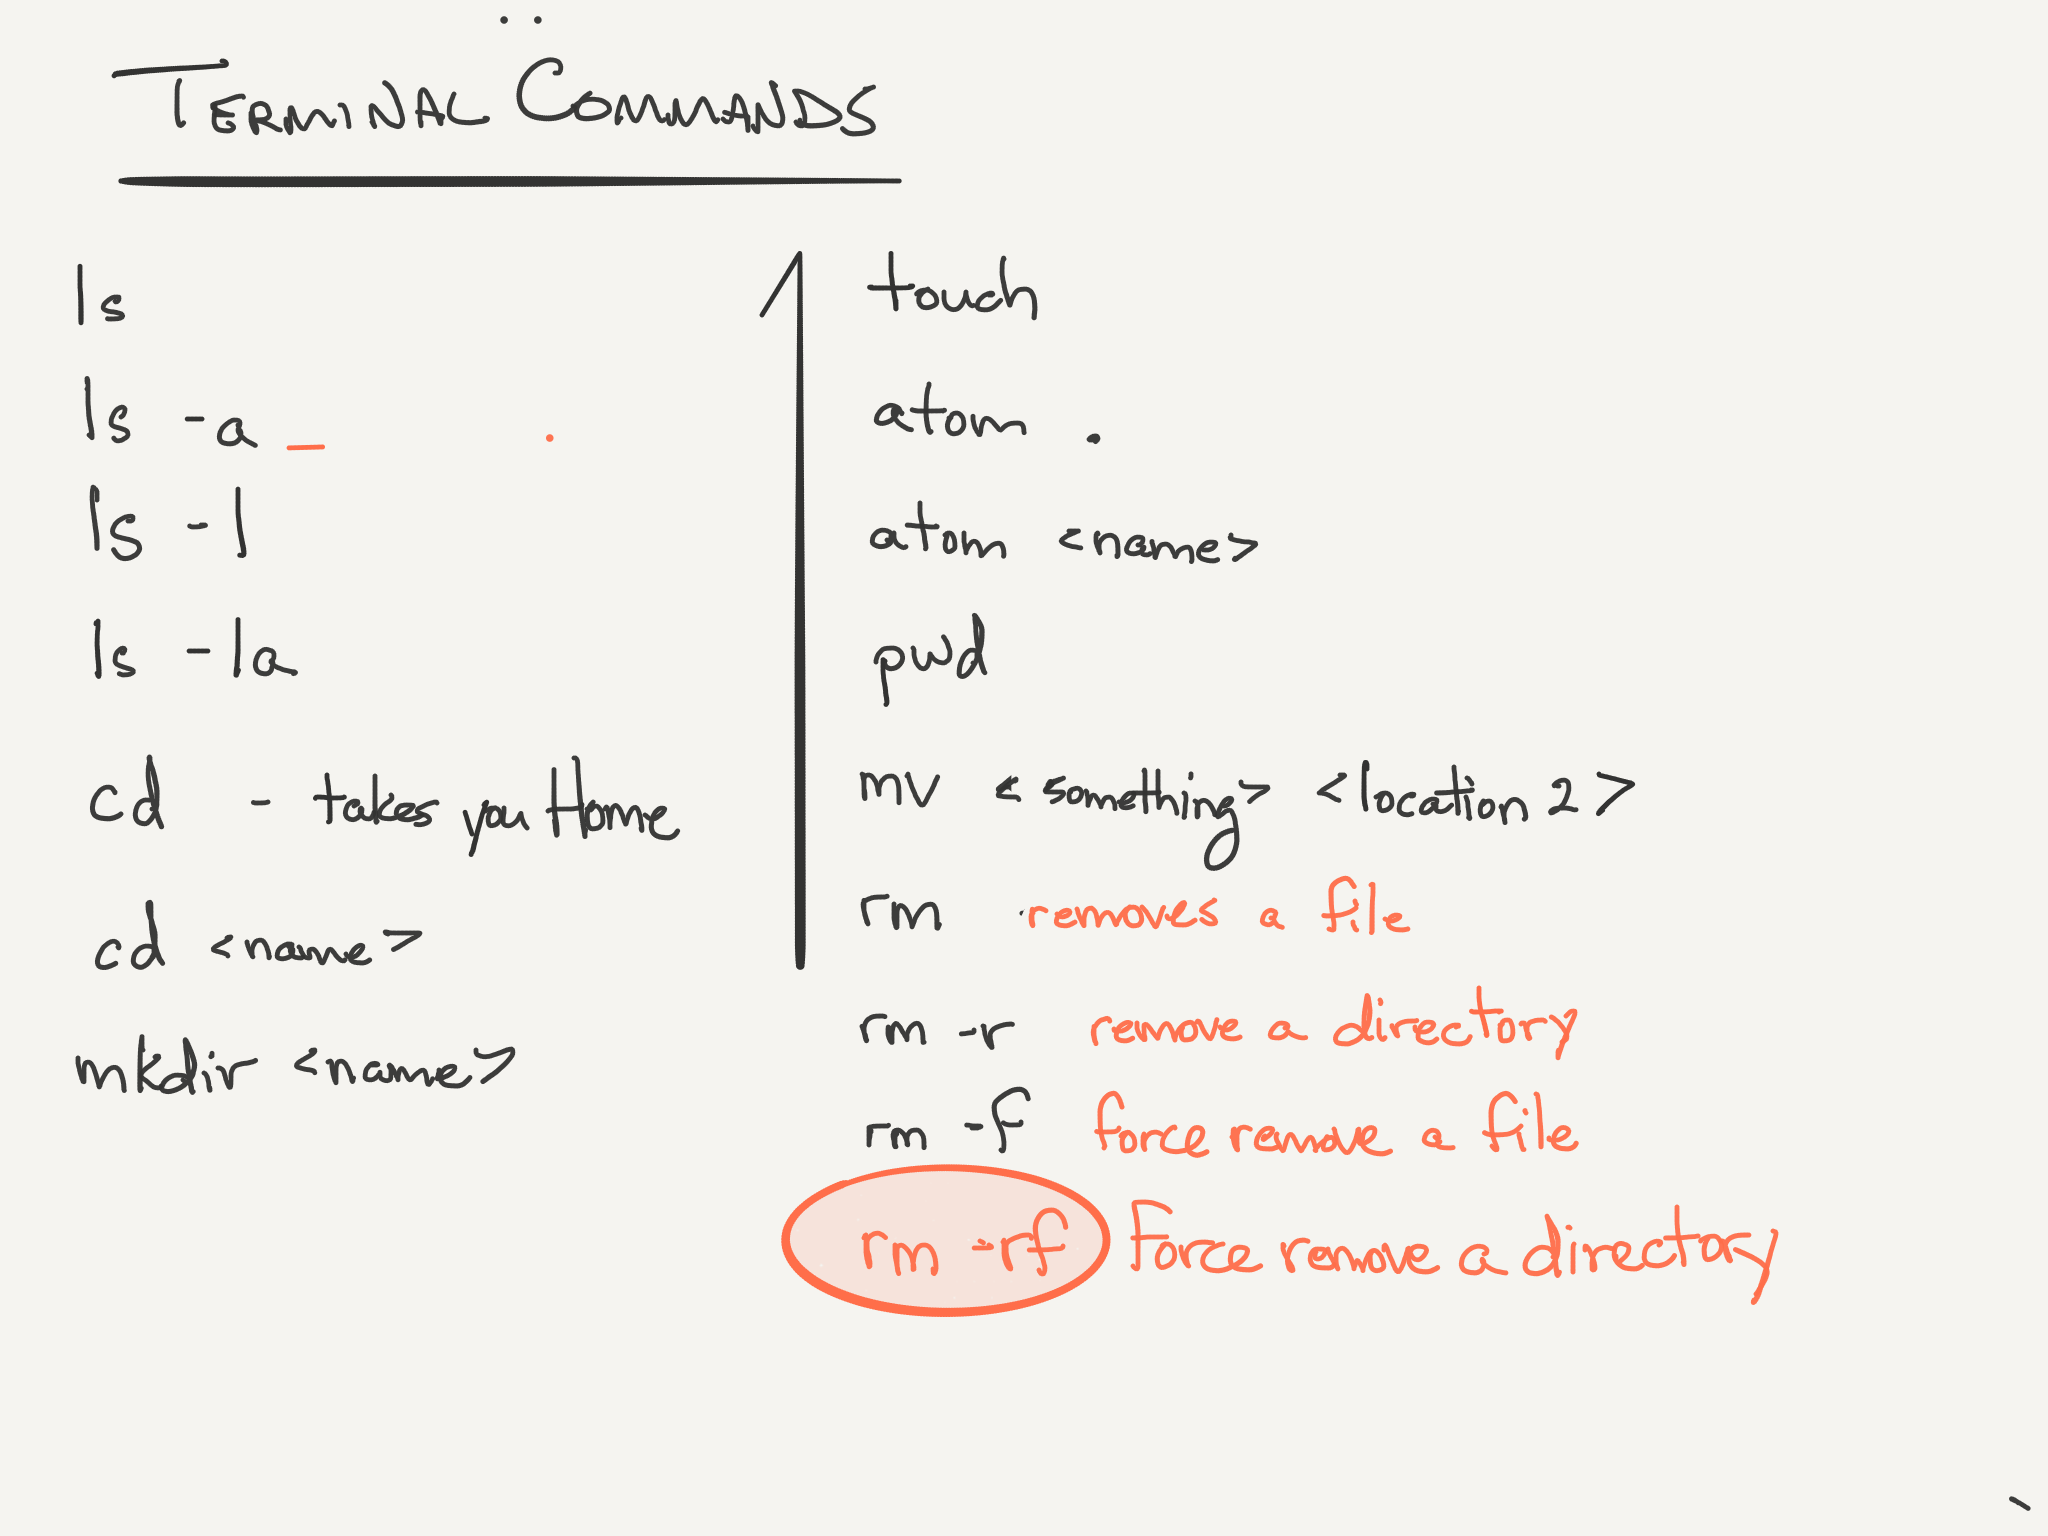 TERMINAL COMMANDS
ls
ls -a
ls -l
ls -la
cd - takes you Home
cd <name>
mkdir <name>
touch
atom .
atom <name>
pwd
mv <something> <location 2>
rm removes a file
rm -r remove a directory
rm -f force remove a file
rm -rf Force remove a directory